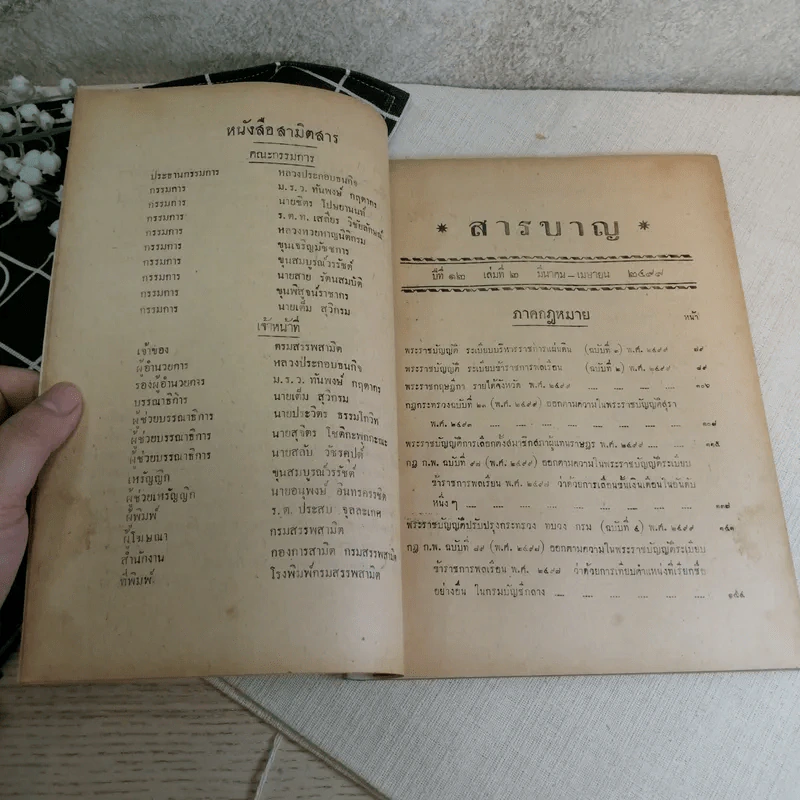 หนังสือสามิตสาร
คณะกรรมการ
ประธานกรรมการ หลวงประกอบธนกิจ
กรรมการ ม.ร.ว. ทันพงษ์ กฤดากร
กรรมการ นายชิตร โปษยานนท์
กรรมการ ร.ต.ท. เสถียร วิชัยลักษณ์
กรรมการ หลวงหวยหาญนิติกรม
กรรมการ ขุนเจริญมัชชการ
กรรมการ ขุนสมบูรณ์วรรัชต์
กรรมการ นายสาย รัตนสมบัติ
กรรมการ ขุนพิสูจน์ราชากร
กรรมการ นายเต็ม สุวิกรม
เจ้าหน้าที่
เจ้าของ กรมสรรพสามิต
ผู้อำนวยการ หลวงประกอบธนกิจ
รองผู้อำนวยการ ม.ร.ว. ทันพงษ์ กฤดากร
บรรณาธิการ นายเต็ม สุวิกรม
ผู้ช่วยบรรณาธิการ นายประวิตร ธรรมโกวิท
ผู้ช่วยบรรณาธิการ นายสุจิตร โชติกะพุกกะณะ
ผู้ช่วยบรรณาธิการ นายสลับ วัชรคุปต์
เหรัญญิก ขุนสมบูรณ์วรรัชต์
ผู้ช่วยเหรัญญิก นายอนุพงษ์ อินทรครรชิต
ผู้พิมพ์ ร.ต. ประสม จุลละเทศ
ผู้โฆษณา กรมสรรพสามิต
สำนักงาน กองการสามิต กรมสรรพสามิต
ที่พิมพ์ โรงพิมพ์กรมสรรพสามิต
* สารบาญ *
ปีที่ ๑๒ เล่มที่ ๒ มีนาคม – เมษายน ๒๔๙๙
ภาคกฎหมาย
หน้า
พระราชบัญญัติ ระเบียบบริหารราชการแผ่นดิน (ฉบับที่ ๑) พ.ศ. ๒๔๙๙ ๘๙
พระราชบัญญัติ ระเบียบข้าราชการพลเรือน (ฉบับที่ ๒) พ.ศ. ๒๔๙๙
พระราชกฤษฎีกา รายได้จังหวัด พ.ศ. ๒๔๙๙ .... .... .... .... ๑๐๖
กฎกระทรวงฉบับที่ ๒๓ (พ.ศ. ๒๔๙๙) ออกตามความในพระราชบัญญัติสุรา
พ.ศ. ๒๔๙๓ .... .... .... .... .... .... ๑๐๗
พระราชบัญญัติการเลือกตั้งสมาชิกสภาผู้แทนราษฎร พ.ศ. ๒๔๙๙ .... .... ๑๑๕
กฎ ก.พ. ฉบับที่ ๙๘ (พ.ศ. ๒๔๙๙) ออกตามความในพระราชบัญญัติระเบียบ
ข้าราชการพลเรือน พ.ศ. ๒๔๙๘ ว่าด้วยการเลื่อนขั้นเงินเดือนในอันดับ
หนึ่ง ๆ .... .... .... .... .... .... ๑๓๗
พระราชบัญญัติปรับปรุงกระทรวง ทบวง กรม (ฉบับที่ ๕) พ.ศ. ๒๔๙๙ ๑๕๑
กฎ ก.พ. ฉบับที่ ๘๙ (พ.ศ. ๒๔๙๘) ออกตามความในพระราชบัญญัติระเบียบ
ข้าราชการพลเรือน พ.ศ. ๒๔๙๘ ว่าด้วยการเทียบตำแหน่งที่เรียกชื่อ
อย่างอื่น ในกรมบัญชีกลาง .... .... .... .... .... ๑๕๔